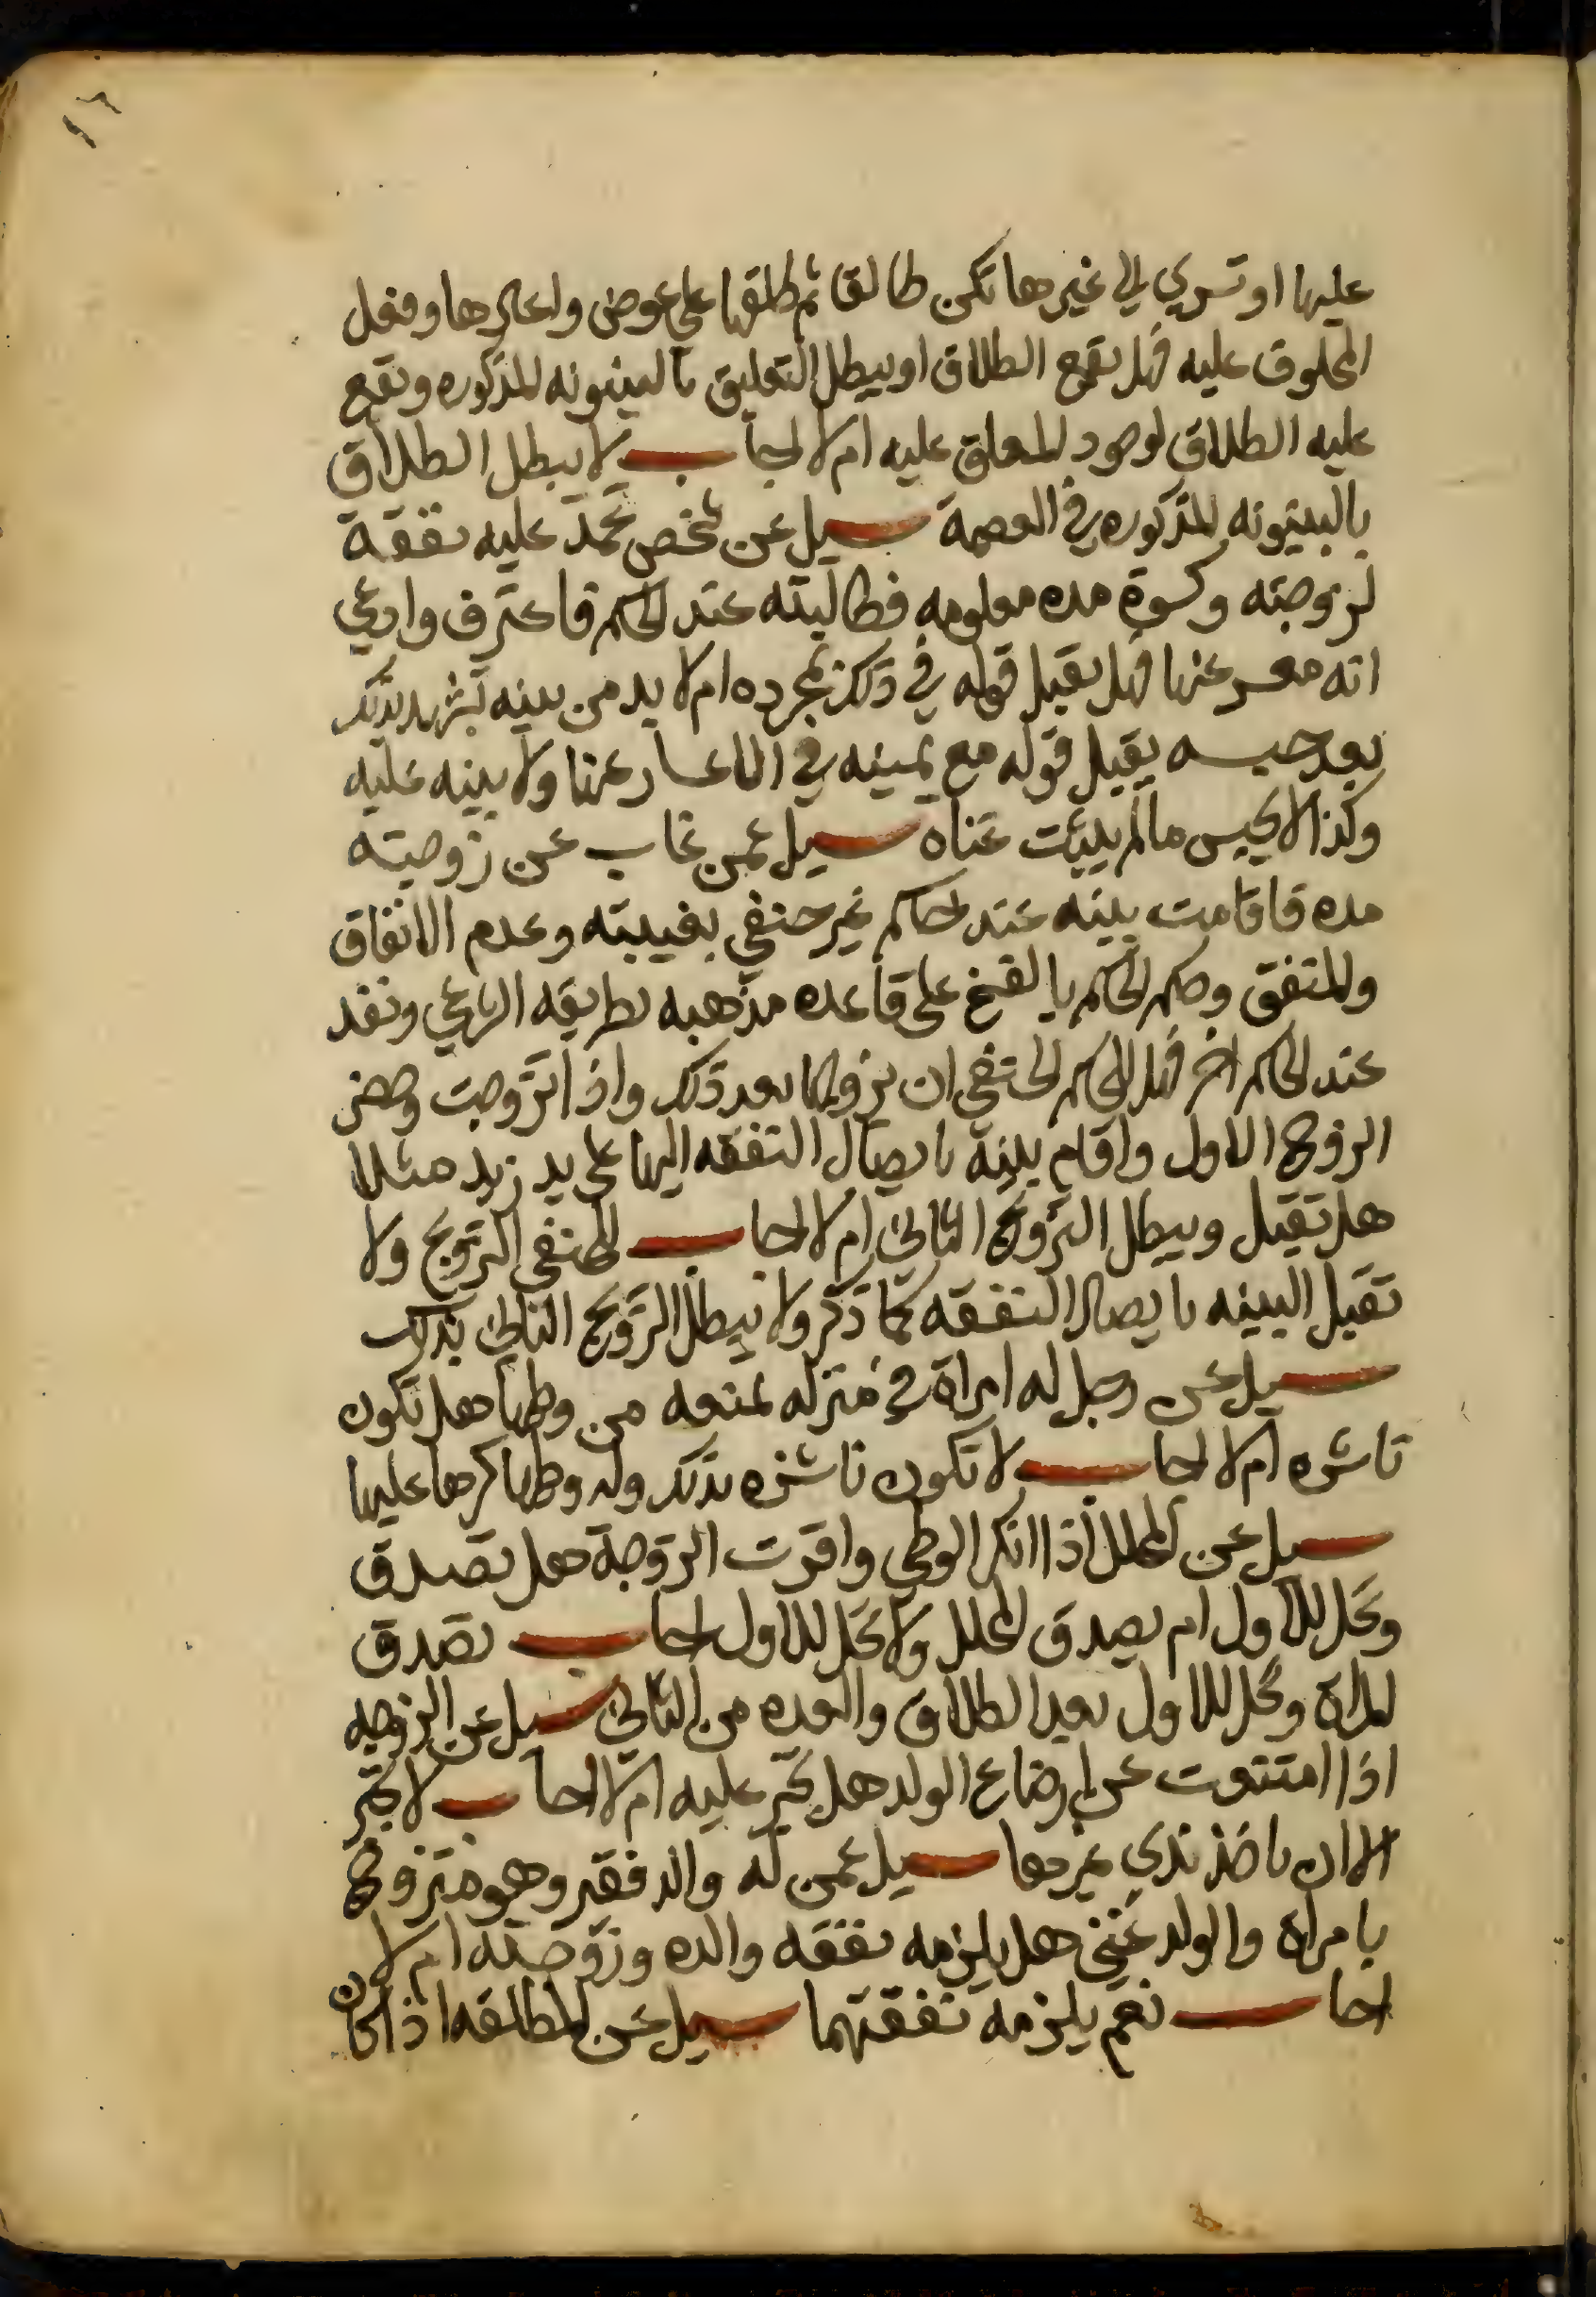 ١٦
عليها او تسري الي غيرها تكن طالقا ثم طلقها علي عوض واعادها وفعل
المحلوف عليه فهل يقع الطلاق او يبطل التعليق بالبينونه المذكوره ويقع
عليه الطلاق لوجود المعلق عليه ام لا اجاب لا يبطل الطلاق
بالبينونه المذكوره في العصمة سيل عن شخص تجمد عليه نفقة
لزوجته وكسوة مده معلومه فطالبته عند الحاكم فاعترف وادعي
انه معسر عنها فهل يقبل قوله في ذلك بمجرده ام لا بد من بينه تشهد بذلك
بعد حبسه يقبل قوله مع يمينه في الاعسار عنها ولا بينه عليه
وكذا لا يحبس ما لم يثبت غناه سيل عمن غاب عن زوجته
مده فاقامت بينه عند حاكم غير حنفي بغيبته وعدم الانفاق
والمنفق وحكم الحاكم بالفسخ علي قاعده مذهبه بطريقه الشرعي ونفذ
عند حاكم اخر فهل للحاكم الحنفي ان يزوجها بعد ذلك واذا تزوجت وحضر
الزوج الاول واقام بينة بايصال النفقه اليها علي يد زيد مثلا
هل تقبل ويبطل التزويج الثاني ام لا اجاب للحنفي التزويج ولا
تقبل البينه بايصال النفقه كما ذكر ولا يبطل التزويج الثاني بذلك
سيل عن رجل له امراة في منزله تمنعه من وطيها هل تكون
ناشزه ام لا اجاب لا تكون ناشزه بذلك وله وطيها كرها عليها
سيل عن المحلل اذا انكر الوطي واقرت الزوجة هل تصدق
وتحل للاول ام يصدق المحلل ولا تحل للاول اجاب تصدق
المراة وتحل للاول بعد الطلاق والعده من الثاني سيل عن الزوجه
اذا امتنعت عن ارضاع الولد هل تجبر عليه ام لا اجاب لا تجبر
الا ان ياخذ ثدي غيرها سيل عمن له والد فقير وهو متزوج
بامراة والولد غني هل يلزمه نفقه والده وزوجته ام لا
اجاب نعم يلزمه نفقتهما سيل عن المطلقه اذا كان